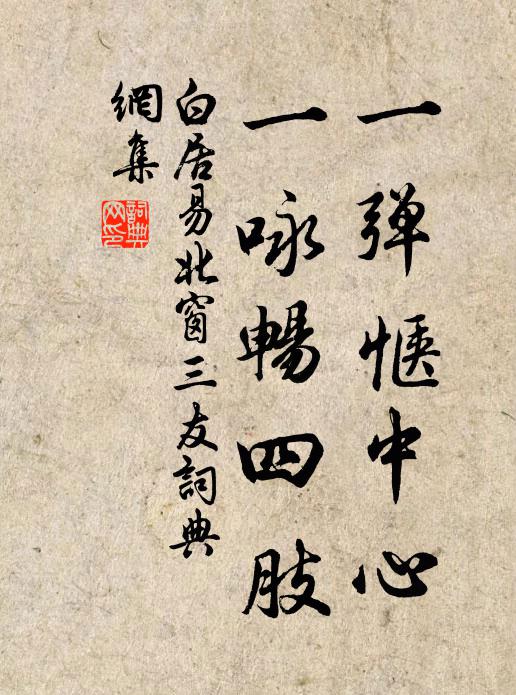 一彈愜中心
一咏暢四肢
白居易北窗三友詞典
網集
詞典
网印